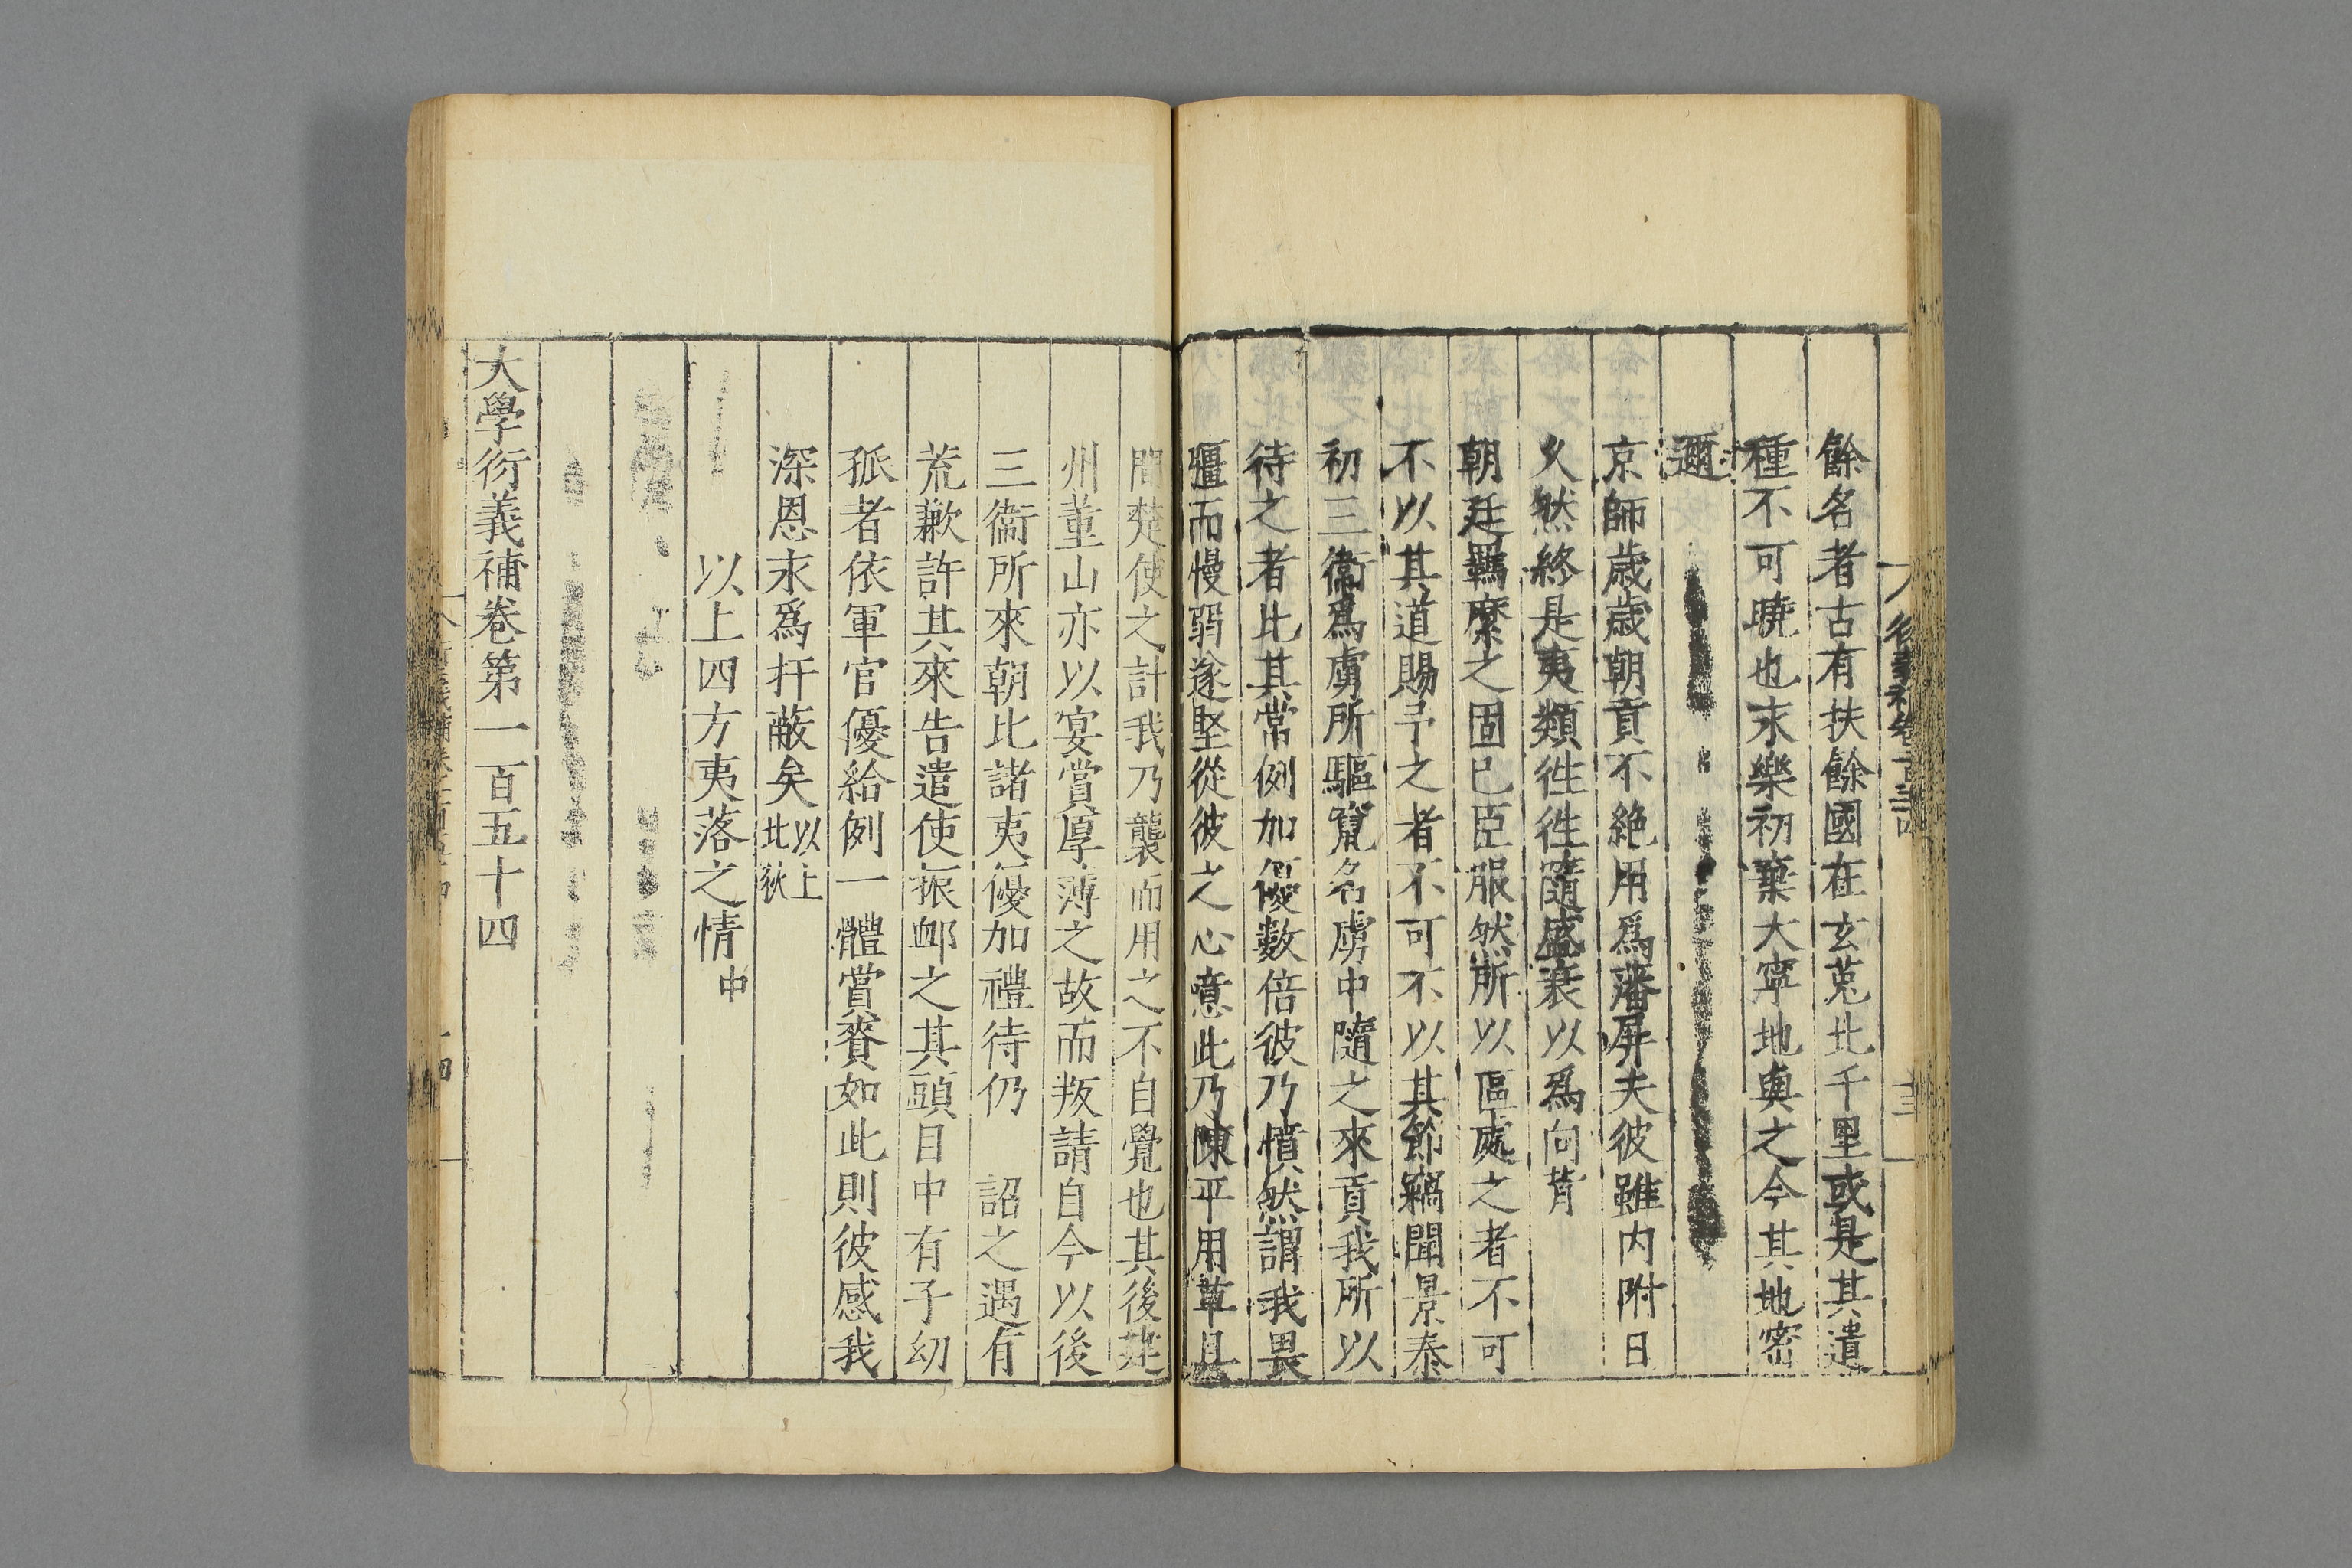 餘名者古有扶餘國在玄菟北千里或是其遺
種不可曉也永樂初棄大寧地與之今其地密
邇
京師歲歲朝貢不絶用爲藩屏夫彼雖内附日
久然終是夷類徃徃隨盛衰以爲向背
朝廷羈縻之固已臣服然所以區處之者不可
不以其道賜予之者不可不以其節竊聞景泰
初三衞爲虜所驅竄名虜中隨之來貢我所以
待之者比其常例加優數倍彼乃憤然謂我畏
彊而慢弱遂堅從彼之心噫此乃陳平用草具
間楚使之計我乃襲而用之不自覺也其後建
州董山亦以宴賞厚薄之故而叛請自今以後
三衞所來朝比諸夷優加禮待仍 詔之遇有
荒歉許其來告遣使振卹之其頭目中有子幼
孤者依軍官優給例一體賞賚如此則彼感我
深恩永爲扞蔽矣以上北狄
以上四方夷落之情中
大學衍義補卷第一百五十四